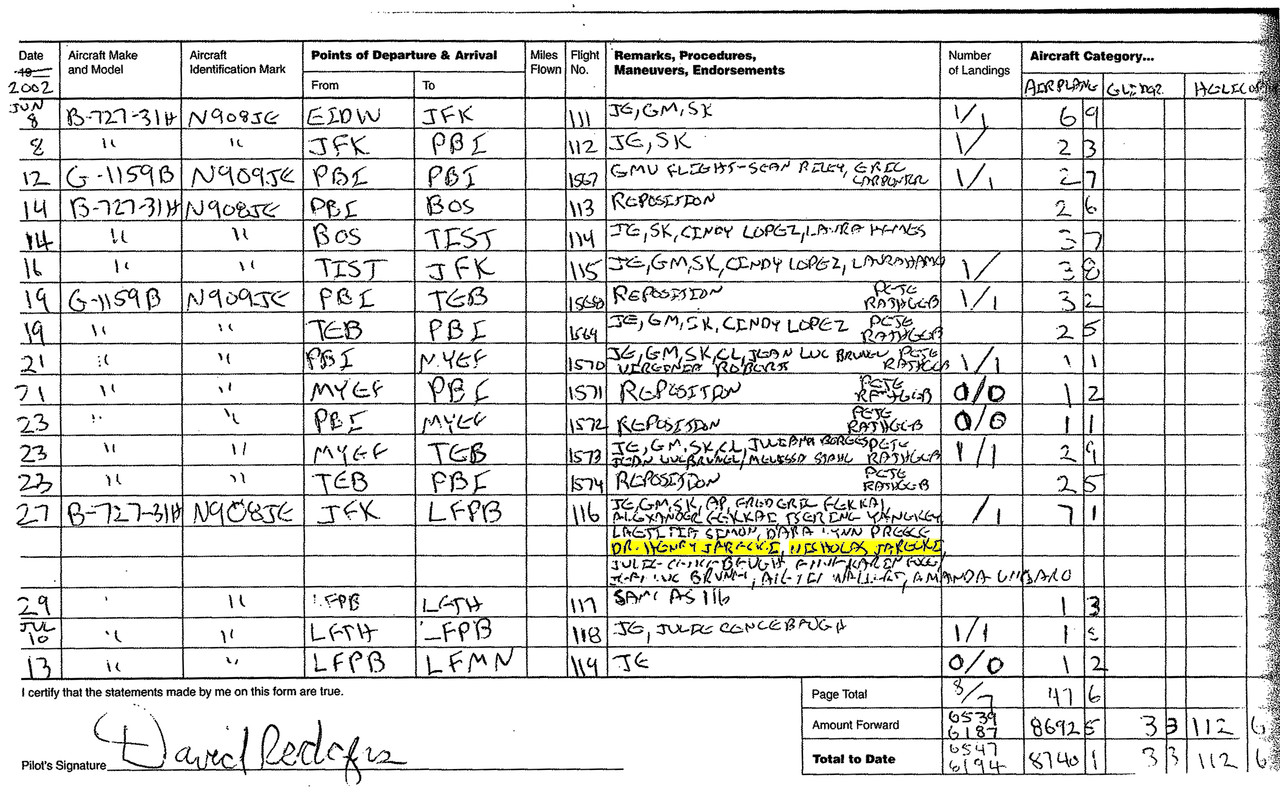 Date Aircraft Make and Model Aircraft Identification Mark Points of Departure & Arrival Miles Flown Flight No. Remarks, Procedures, Maneuvers, Endorsements Number of Landings Aircraft Category...
19 2002 From To AIRPLANE GLIDER
JUN 8 B-727-31H N908JE EIDW JFK 111 JE, GM, SK 1/1 6 9
8 " " JFK PBI 112 JE, SK 1/ 2 3
12 G-1159B N909JE PBI PBI 1567 GMU FLIGHT-SEAN RILEY, ERIC CARPENTER 1/1 2 7
14 B-727-31H N908JE PBI BOS 113 REPOSITION 2 6
14 " " BOS TIST 114 JE, SK, CINDY LOPEZ, LAURA 3 7
16 " " TIST JFK 115 JE, GM, SK, CINDY LOPEZ, 1/ 3 8
19 G-1159B N909JE PBI TEB 1568 REPOSITION PETE RATHGEB 1/1 3 2
19 " " TEB PBI 1569 JE, GM, SK, CINDY LOPEZ PETE RATHGEB 2 5
21 " " PBI MYEF 1570 JE, GM, SK, CL, JEAN LUC BRUNEL, PETE RATHGEB 1/1 1 1
VIRGINIA ROBERTS
21 " " MYEF PBI 1571 REPOSITION PETE RATHGEB 0/0 1 2
23 " " PBI MYEF 1572 REPOSITION PETE RATHGEB 0/0 1 1
23 " " MYEF TEB 1573 JE, GM, SK, CL, JULIANA BORGES PETE RATHGEB 1/1 2 9
JEAN LUC BRUNEL/MELISSA STAHL
23 " " TEB PBI 1574 REPOSITION PETE RATHGEB 2 5
27 B-727-31H N908JE JFK LFPB 116 JE, GM, SK, AP, FREDERIC FEKKAI, /1 7 1
ALEXANDER FEKKAI,
LAETITIA SIMON, DARA LYNN PREECE
DR. HENRY JARECKI, NICHOLAS JARECKI
LUC BRUNEL, AMANDA
29 " " LFPB LFTH 117 SAME AS 116 1 3
JUL 10 " " LFTH LFPB 118 JE, JULIE 1/1 1
13 " " LFPB LFMN 119 JE 0/0 1 2
I certify that the statements made by me on this form are true.
Page Total 8/7 47 6
Amount Forward 6539 6187 8692 5 3 3 112 6
Pilot's Signature David Rodgers Total to Date 6547 6194 8740 1 3 3 112 6